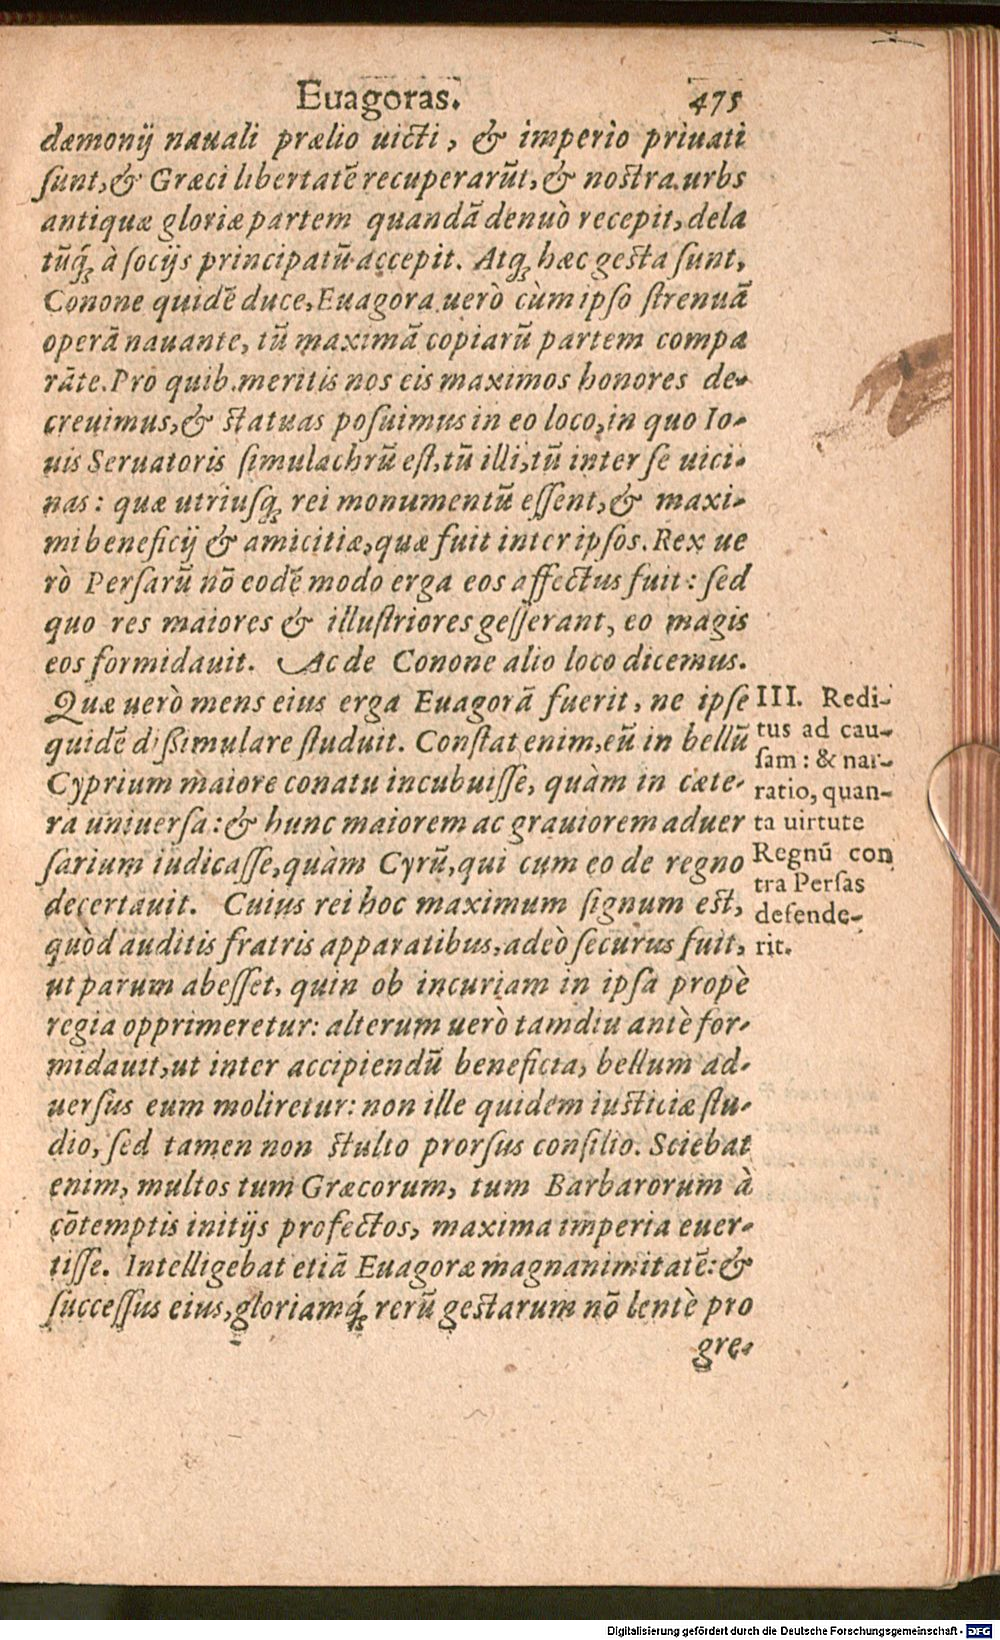 Euagoras. 475
dæmonij nauali prælio uicti, & imperio priuati
sunt, & Græci libertatē recuperarūt, & nostra urbs
antiquæ gloriæ partem quandā denuò recepit, dela
tūq́ꝫ à socijs principatū accepit. Atqꝫ hæc gesta sunt,
Conone quidē duce, Euagora uerò cùm ipso strenuā
operā nauante, tū maximā copiarū partem compa
rāte. Pro quib. meritis nos eis maximos honores de-
creuimus, & statuas posuimus in eo loco, in quo Io-
uis Seruatoris simulachrū est, tū illi, tū inter se uici-
nas: quæ utriusqꝫ rei monumentū essent, & maxi-
mi beneficij & amicitiæ, quæ fuit inter ipsos. Rex ue
rò Persarū nō eodē modo erga eos affectus fuit: sed
quo res maiores & illustriores gesserant, eo magis
eos formidauit. Ac de Conone alio loco dicemus.
Quæ uerò mens eius erga Euagorā fuerit, ne ipse
quidē dißimulare studuit. Constat enim, eū in bellū
Cyprium maiore conatu incubuisse, quàm in cæte-
ra uniuersa: & hunc maiorem ac grauiorem aduer
sarium iudicasse, quàm Cyrū, qui cum eo de regno
decertauit. Cuius rei hoc maximum signum est,
quòd auditis fratris apparatibus, adeò securus fuit,
ut parum abesset, quin ob incuriam in ipsa propè
regia opprimeretur: alterum uerò tamdiu antè for-
midauit, ut inter accipiendū beneficia, bellum ad-
uersus eum moliretur: non ille quidem iusticiæ stu-
dio, sed tamen non stulto prorsus consilio. Sciebat
enim, multos tum Græcorum, tum Barbarorum à
cōtemptis initijs profectos, maxima imperia euer-
tisse. Intelligebat etiā Euagoræ magnanimitatē: &
successus eius, gloriamq́ꝫ rerū gestarum nō lentè pro
gre-
III. Redi-
tus ad cau-
sam: & nar-
ratio, quan-
ta uirtute
Regnū con
tra Persas
defende-
rit.
Digitalisierung gefördert durch die Deutsche Forschungsgemeinschaft - DFG